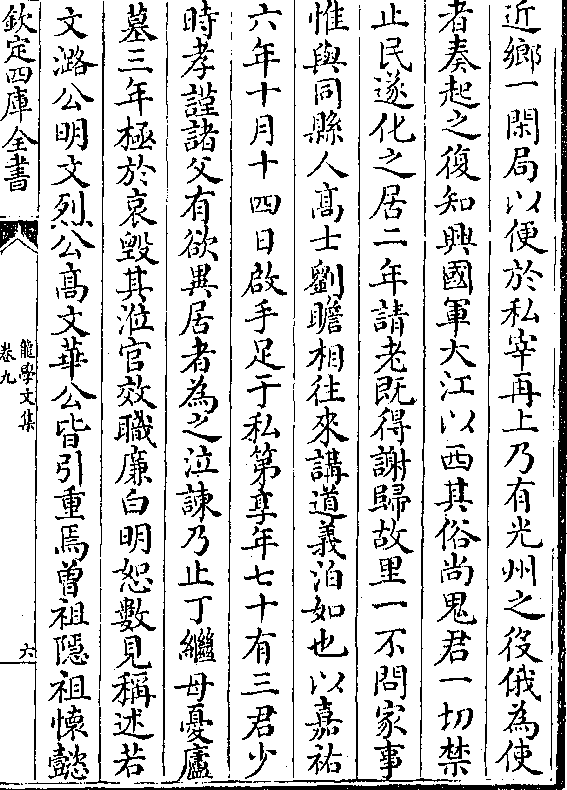 近鄉一閑局以便於私宰再上乃有光州之役俄為使
者奏起之復知興國軍大江以西其俗尚鬼君一切禁
止民遂化之居二年請老既得謝歸故里一不問家事
惟與同縣人髙士劉瞻相往來講道義泊如也以嘉祐
六年十月十四日啟手足于私第享年七十有三君少
時孝謹諸父有欲異居者為之泣諫乃止丁繼母憂廬
墓三年極於哀毀其涖官效職廉白明恕數見稱述若
文潞公明文烈公髙文華公皆引重焉曽祖隱祖懐懿
欽定四庫全書
龍學文集
卷九
六